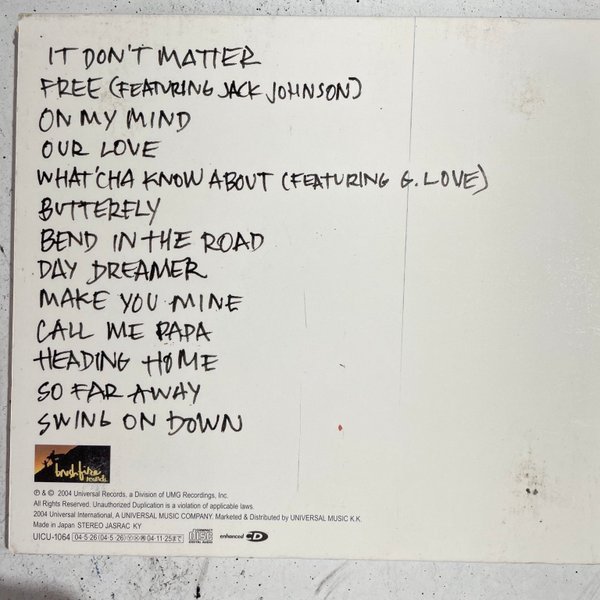 IT DON'T MATTER
FREE (FEATURING JACK JOHNSON)
ON MY MIND
OUR LOVE
WHAT'CHA KNOW ABOUT (FEATURING G. LOVE)
BUTTERFLY
BEND IN THE ROAD
DAY DREAMER
MAKE YOU MINE
CALL ME PAPA
HEADING HOME
SO FAR AWAY
SWING ON DOWN
brushfire
records
℗ & © 2004 Universal Records, a Division of UMG Recordings, Inc.
All Rights Reserved. Unauthorized Duplication is a violation of applicable laws.
2004 Universal International, A UNIVERSAL MUSIC COMPANY. Marketed & Distributed by UNIVERSAL MUSIC K.K.
Made in Japan STEREO JASRAC KY
UICU-1064 04·5·26 (04·5·26) 04·11·25まで COMPACT disc DIGITAL AUDIO enhanced CD